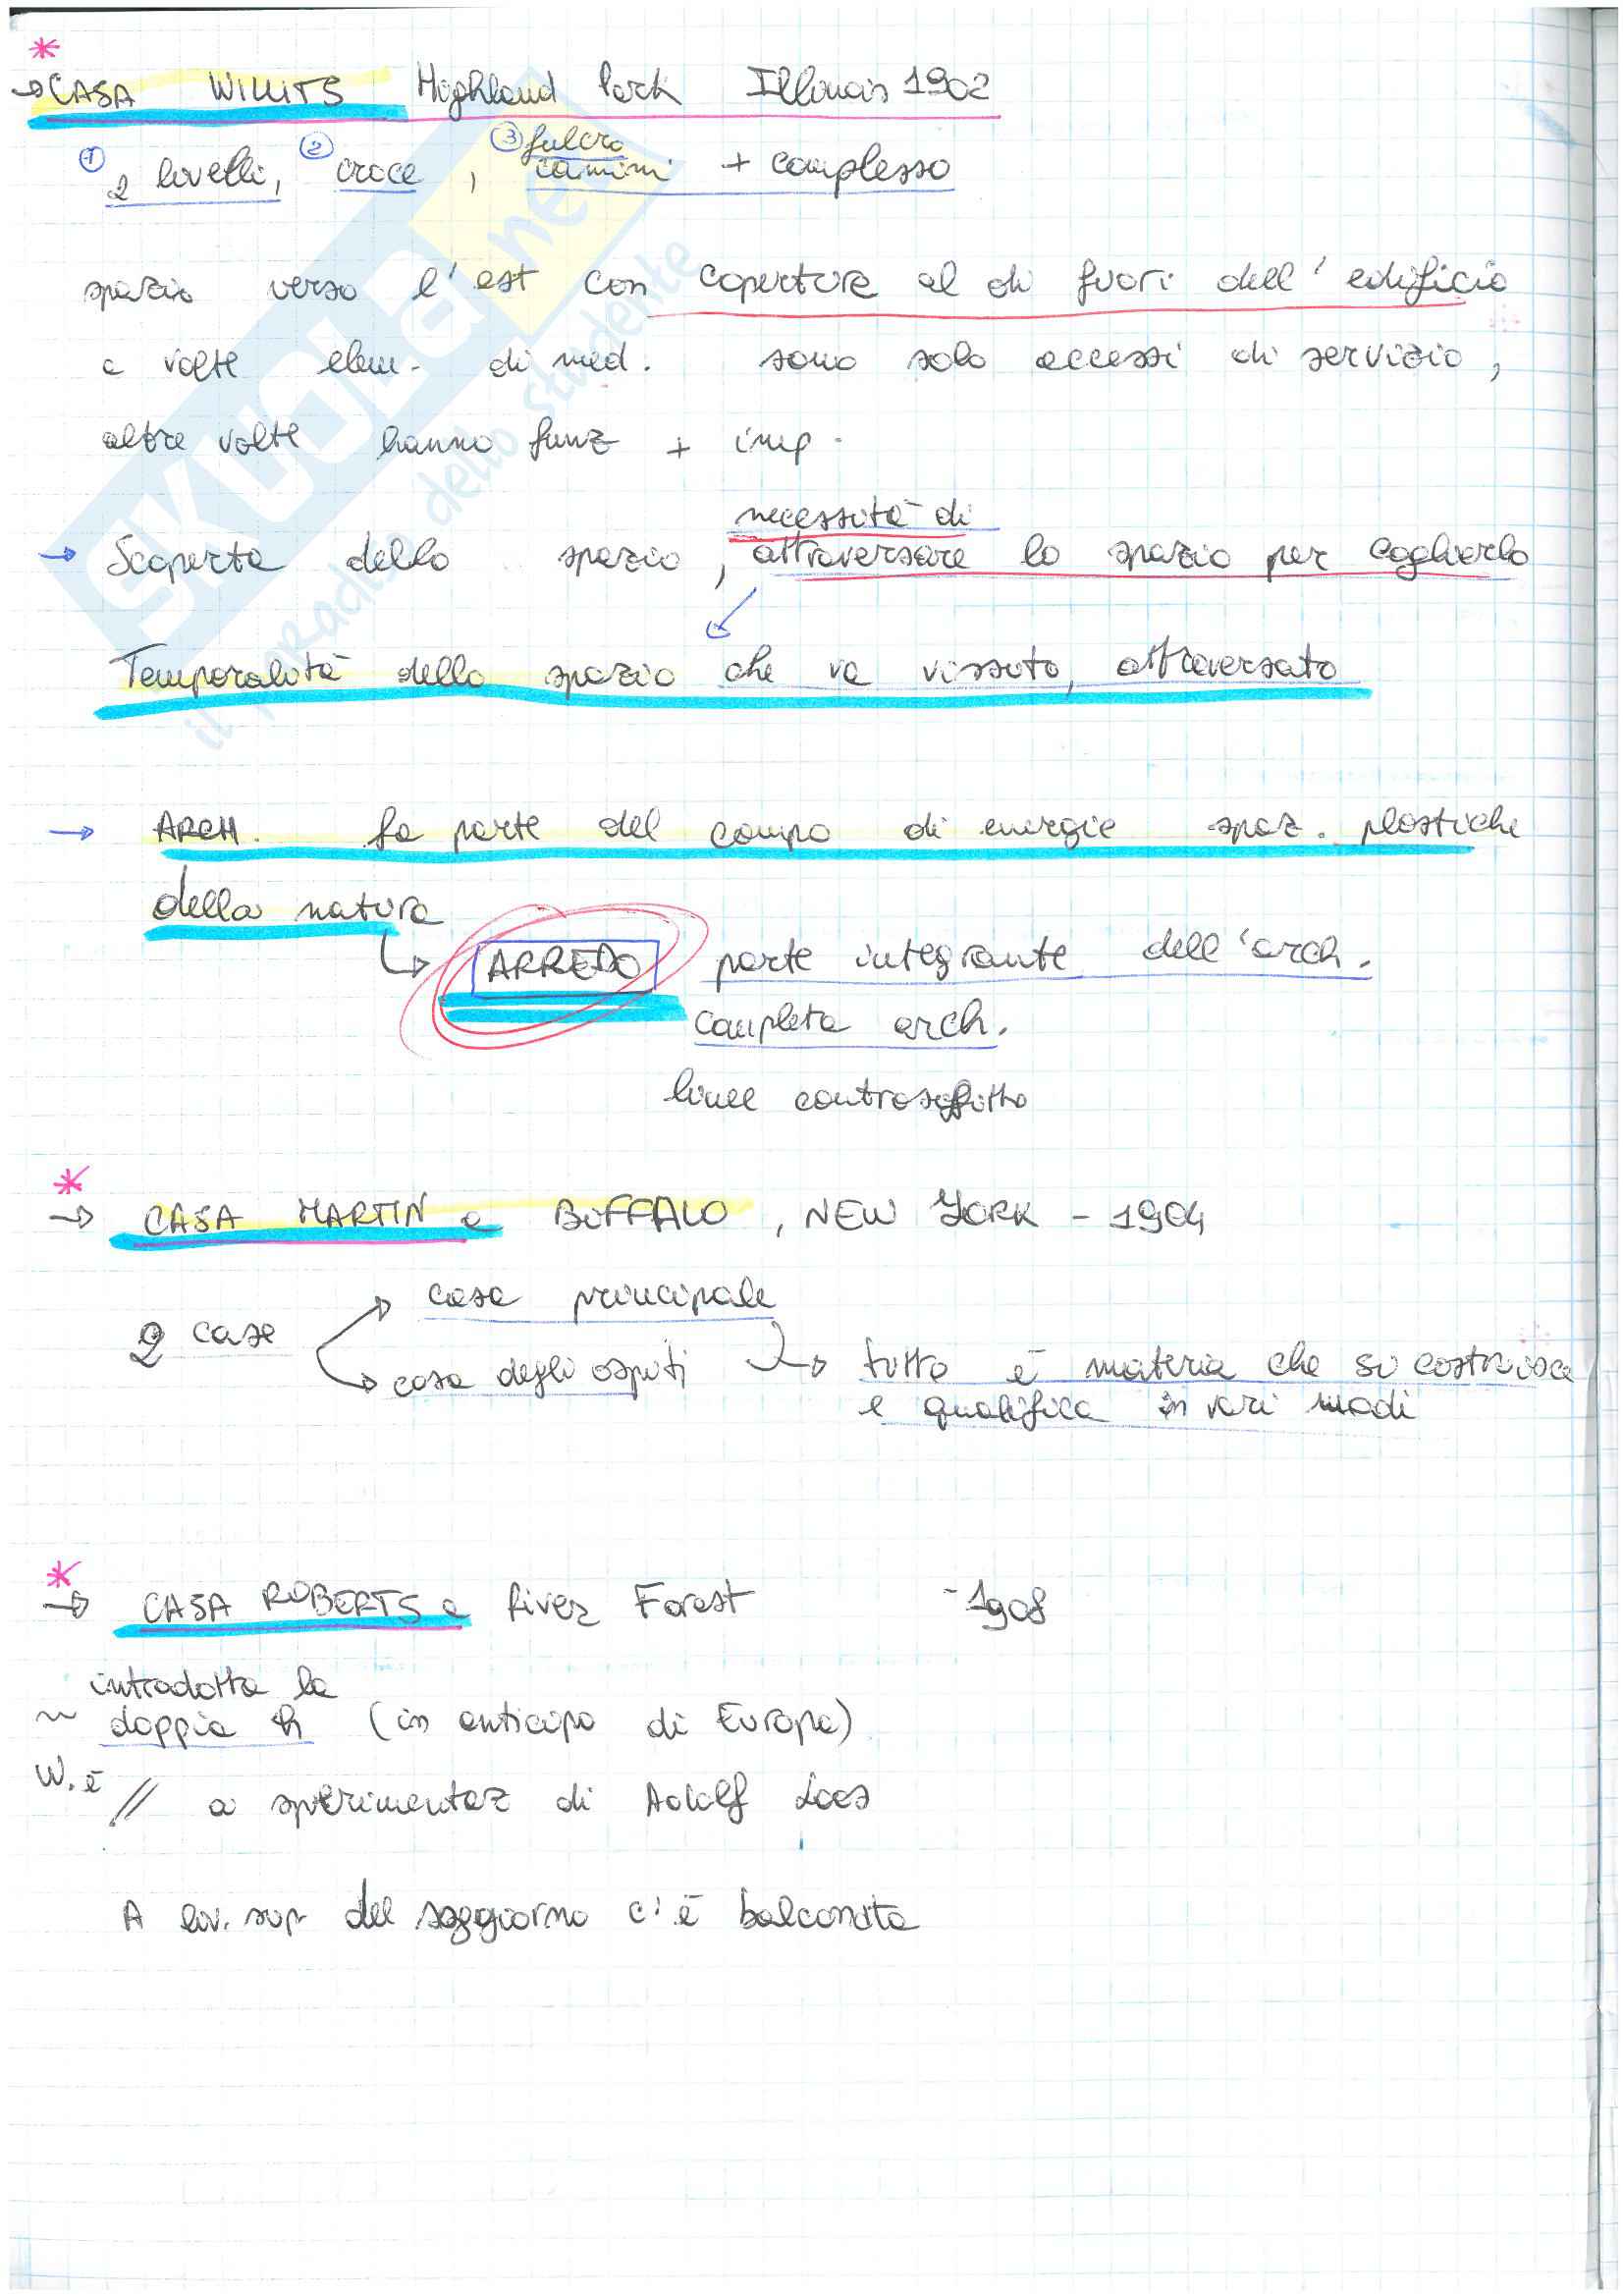 * → CASA WILLITS Highland Park Illinois 1902
① 2 livelli, ② croce, ③ fulcro camini + complesso
spazio verso l'est con coperture al di fuori dell'edificio
a volte elem. di med. sono solo accessi di servizio,
altre volte hanno funz + imp.
necessità di
→ Scoperta dello spazio, attraversare lo spazio per coglierlo
Temporalità dello spazio che va vissuto, attraversato
→ ARCH. fa parte del campo di energie spaz. plastiche
della natura
↳ ARREDO parte integrante dell'arch.
completa arch.
linee controsoffitto
* → CASA MARTIN a BUFFALO, NEW YORK - 1904
casa principale
2 case
casa degli ospiti → tutto è materia che si costruisce
e qualifica in vari modi
* → CASA ROBERTS a River Forest - 1908
introdotta la
~ doppia h (in anticipo di Europa)
W. è // a sperimentaz di Adolf Loos
A liv. sup del soggiorno c'è balconata
SKUOLA.net
il paradiso dello studente